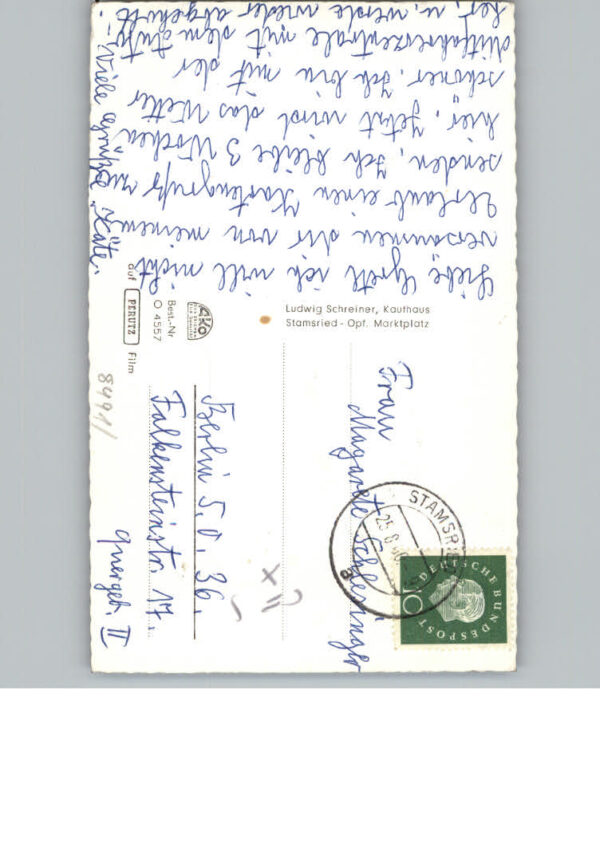 Liebe Gretl ich will nicht
versäumen dir von meinem
Urlaub einen Kartengruß zu
senden, Ich bleibe 3 Wochen
hier, jetzt wird das Wetter
schöner. Ich bin mit der
Mitfahrerzentrale mit dem Auto
her, u. werde wieder abgeholt.
Viele Grüße Käte.
Ludwig Schreiner, Kaufhaus
Stamsried - Opf. Marktplatz
AKO
Best.-Nr
O 4557
auf PERUTZ Film
STAMSRIED
25.8.
a
DEUTSCHE BUNDESPOST
10
Frau
Magarete Schlesinger
Berlin S.O. 36.
Falkensteinstr. 17.
Quergeb. II
8491/